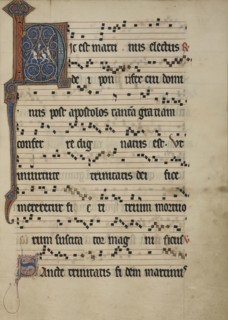 ic est marti nus electus
de i pon tifex cui domi
nus post apostolos tantam gratiam
confer re dig natus est. Ut
in virtute trinitatis dei fice
mereretur fi e ri trium mortuo
rum suscita tor mag ni ficus
Sancte trinitatis fi dem martinus